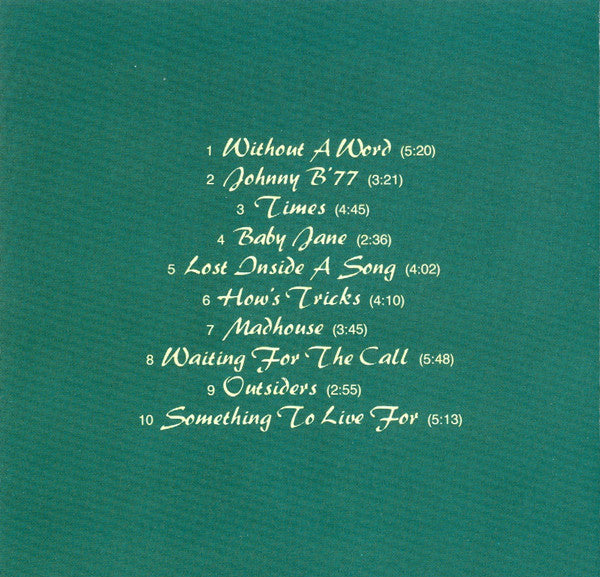 1 Without A Word (5:20)
2 Johnny B'77 (3:21)
3 Times (4:45)
4 Baby Jane (2:36)
5 Lost Inside A Song (4:02)
6 How's Tricks (4:10)
7 Madhouse (3:45)
8 Waiting For The Call (5:48)
9 Outsiders (2:55)
10 Something To Live For (5:13)